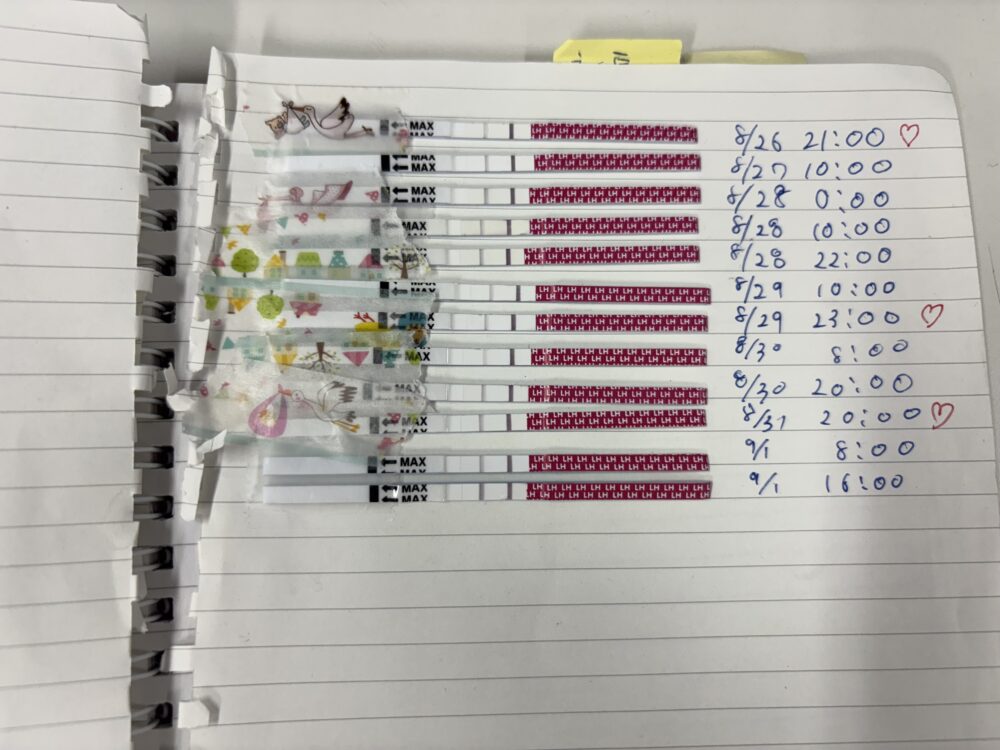 MAX MAX LH LH LH LH LH LH LH LH LH LH 8/26 21:00 ♡
MAX MAX LH LH LH LH LH LH LH LH LH LH 8/27 10:00
MAX MAX LH LH LH LH LH LH LH LH LH LH 8/28 0:00
MAX LH LH LH LH LH LH LH LH LH LH 8/28 10:00
LH LH LH LH LH LH LH LH LH LH 8/28 22:00
MAX LH LH LH LH LH LH LH LH LH LH 8/29 10:00
MAX LH LH LH LH LH LH LH LH LH LH 8/29 23:00 ♡
MAX LH LH LH LH LH LH LH LH LH LH 8/30 8:00
MAX LH LH LH LH LH LH LH LH LH LH 8/30 20:00
MAX LH LH LH LH LH LH LH LH LH LH 8/31 20:00 ♡
MAX MAX LH LH LH LH LH LH LH LH LH LH 9/1 8:00
MAX MAX LH LH LH LH LH LH LH LH LH LH 9/1 16:00